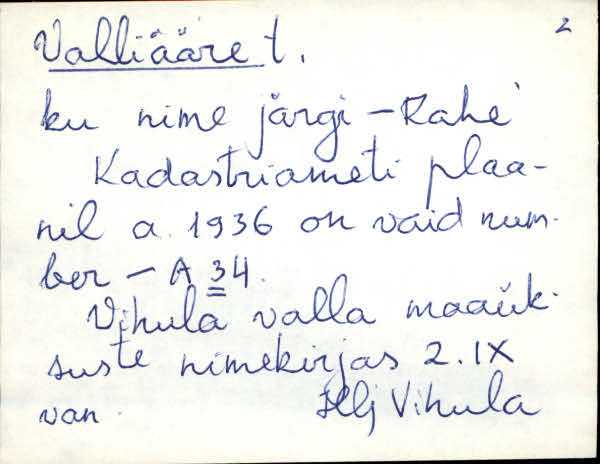 2
Valliääre t.
ku nime järgi - Rahe
Kadastriameti plaa-
nil a. 1936 on vaid num-
ber - A 34.
Vihula valla maaük-
suste nimekirjas 2.IX
van Hlj Vihula